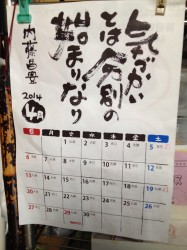 気づかい
とは分別の
始まりなり
内藤昌豊
2014
4月
日 月 火 水 木 金 土
1 2 3 4 5
6 7 8 9 10 11 12
13 14 15 16 17 18 19
20 21 22 23 24 25 26
27 28 29 30